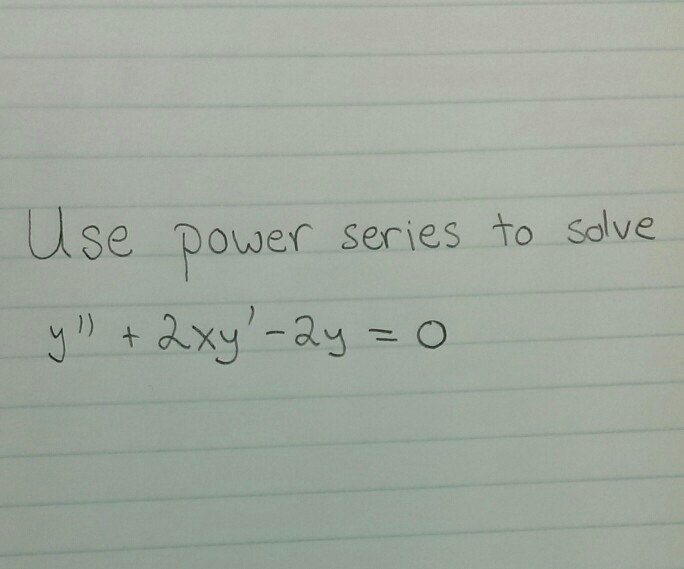 Use power series to solve
y'' + 2xy' - 2y = 0